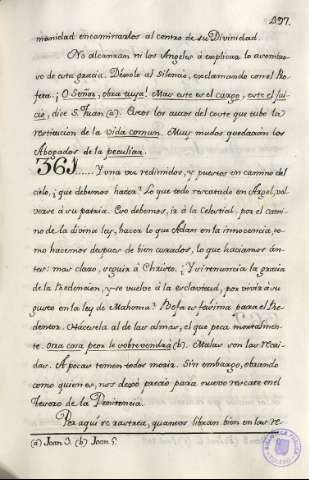 497.
manidad encaminarlos al centro de su Divinidad.
No alcanzan ni los Angeles á explicar lo excesi-
vo de esta gracia. Dexolo al silencio, exclamando con el Pro-
feta: ¡O Señor, obra tuya! Mas este es el cargo, este el jui-
cio, dice S. Juan (a). Estos los autos del coste que tubo la
restitucion de la vida comun. Muy mudos quedarán los
Abogados de la peculiar.
361..... Y una vez redimidos, y puestos en camino del
cielo, ¿que debemos hacer? Lo que todo rescatado en Argel, vol-
verse á su patria. Eso debemos, ir á la Celestial, por el cami-
no de la divina ley, hacer lo que Adan en la innocencia, co-
mo hacemos despues de bien curados, lo que haciamos án-
tes: mas claro, seguir á Christo. ¿Y si renuncia la gracia
de la Redencion, y se vuelve á la esclavitud, por vivir á su
gusto en la ley de Mahoma? Befa es ésta para el Re-
dentor. Hacesela al de las almas, el que peca mortalmen-
te. Otra cosa peor le sobrevendrá (b). Malas son las recai-
das. A pocas temen todos morir. Sin embargo, obrando
como quien es, nos dexó precio para nuevo rescate en el
Tesoro de la Penitencia.
Por aquí se rastrea, quantos libran bien en las re-
(a) Joan 3. (b) Joan 5.